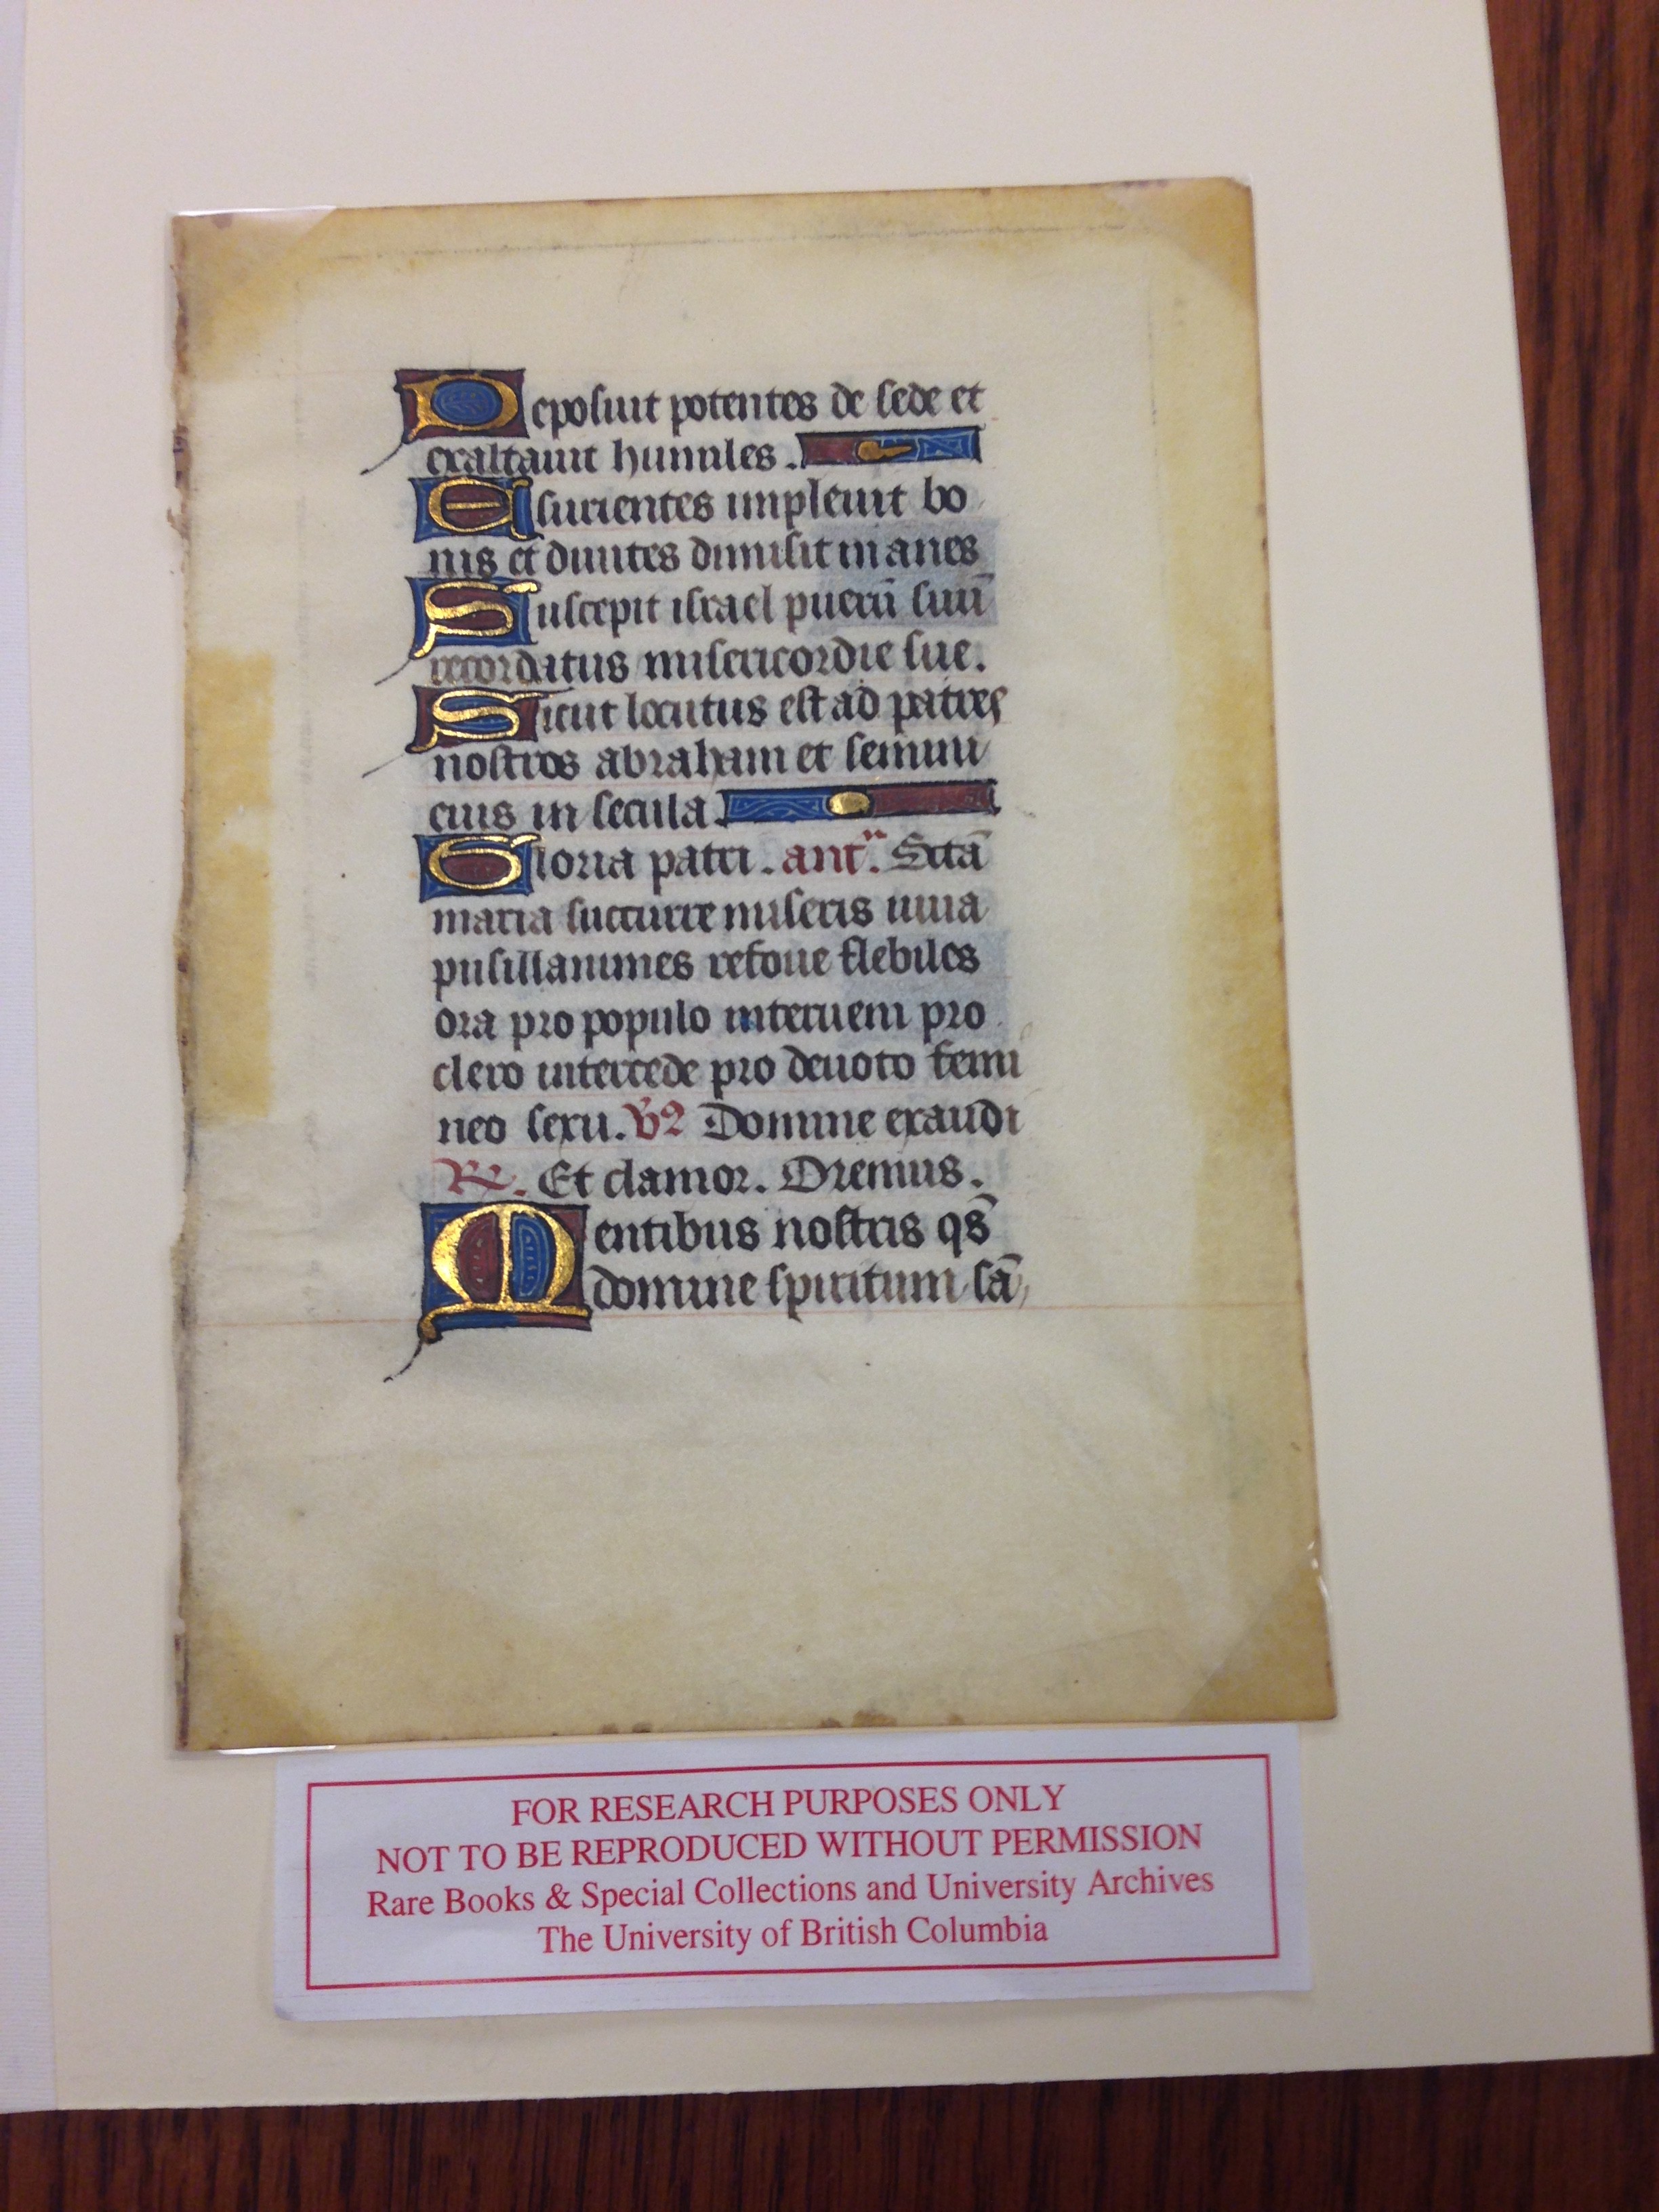 Deposuit potentes de sede et
exaltauit humiles.
Esurientes impleuit bo
nis et diuites dimisit inanes
Suscepit israel puerū suū
recordatus misericordie sue.
Sicut locutus est ad patres
nostros abraham et semini
eius in secula.
Gloria patri. ant. Sctā
maria succurre miseris iuua
pusillanimes refoue flebiles
ora pro populo interueni pro
clero intercede pro deuoto femi
neo sexu. V Domine exaudi
R. Et clamor. Oremus.
Mentibus nostris qs̄
domine spiritum sā
FOR RESEARCH PURPOSES ONLY
NOT TO BE REPRODUCED WITHOUT PERMISSION
Rare Books & Special Collections and University Archives
The University of British Columbia